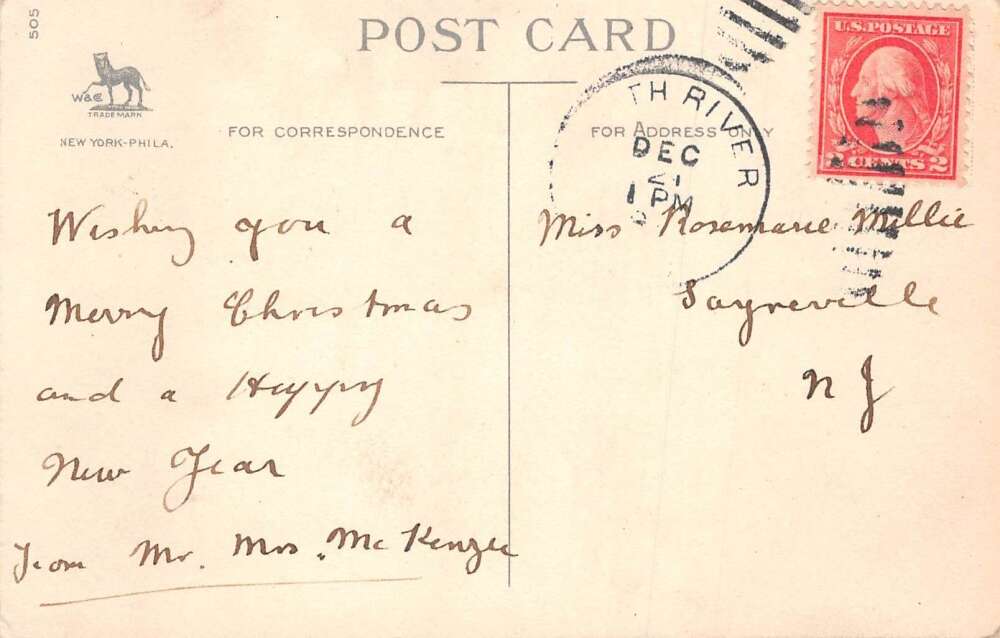 505
POST CARD
W&C
TRADE MARK
NEW YORK-PHILA.
FOR CORRESPONDENCE
FOR ADDRESS ONLY
U.S. POSTAGE
2 CENTS 2
TH RIVER
DEC
21
1 PM
Wishing you a
Merry Christmas
and a Happy
New Year
From Mr. Mrs. McKenzie
Miss Rosemarie Millie
Sayreville
N J